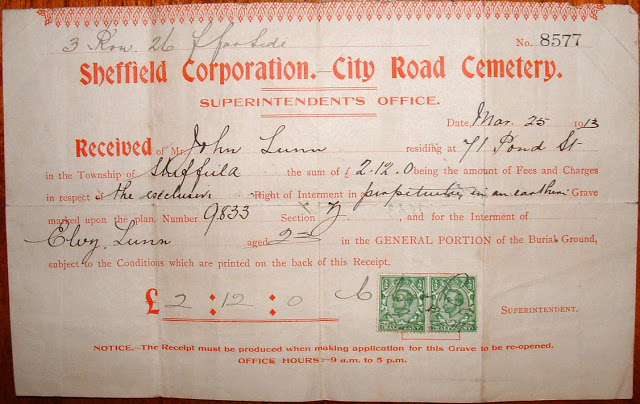 3 Row 26 f far side
No. 8577
Sheffield Corporation.—City Road Cemetery.
SUPERINTENDENT'S OFFICE.
Date, Mar. 25 1913
Received of Mr John Lunn residing at 71 Pond St
in the Township of Sheffield the sum of £ 2.12.0 being the amount of Fees and Charges
in respect of the exclusive Right of Interment in perpetuity in an earthen Grave
marked upon the plan, Number 9833 Section , and for the Interment of
Lunn aged 2 in the GENERAL PORTION of the Burial Ground,
subject to the Conditions which are printed on the back of this Receipt.
£ 2 : 12 : 0
SUPERINTENDENT.
NOTICE. The Receipt must be produced when making application for this Grave to be re-opened.
OFFICE HOURS:—9 a.m. to 5 p.m.